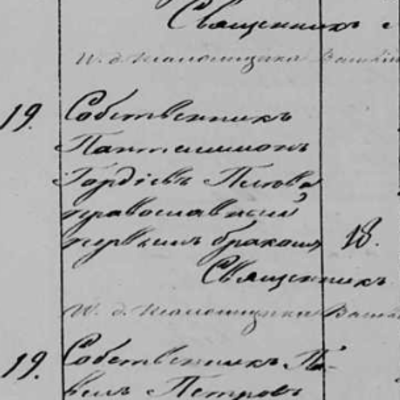 Священникъ
И. д. Псаломщика
19. Собственникъ
Пантелимонъ
Гордіевъ
православный
первымъ бракомъ 18.
Священникъ
И. д. Псаломщика
19. Собственникъ Па-
велъ Петровъ